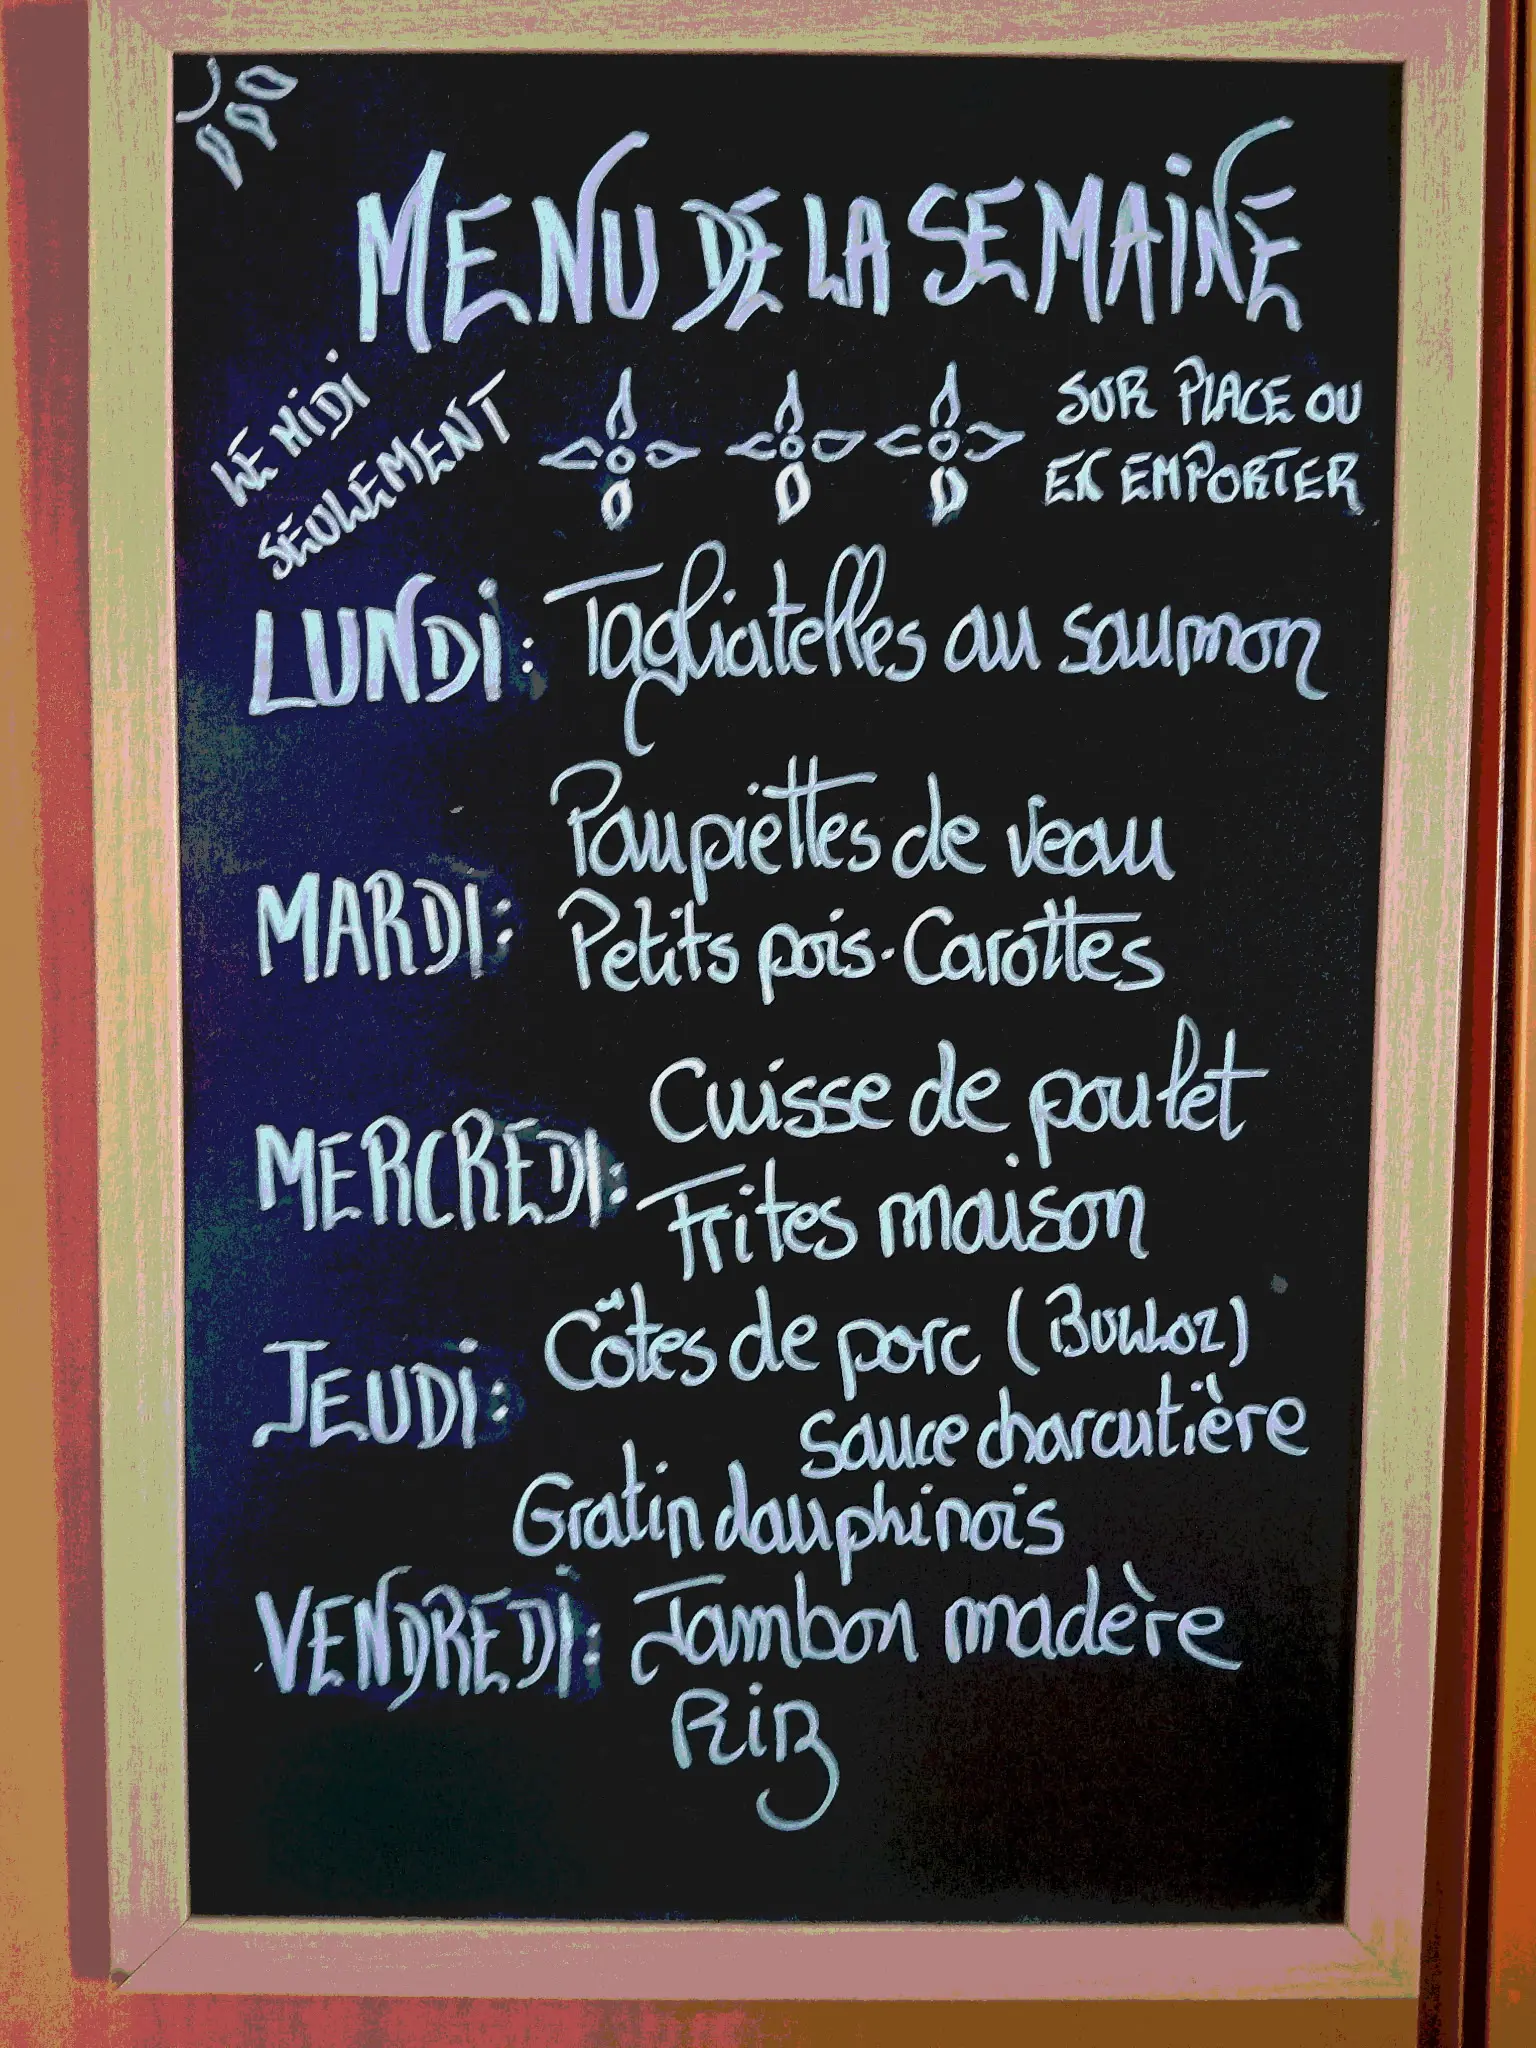 MENU DE LA SEMAINE
LE MIDI
SEULEMENT
SUR PLACE OU
EN EMPORTER
LUNDI: Tagliatelles au saumon
Paupiettes de veau
MARDI: Petits pois-Carottes
Cuisse de poulet
MERCREDI: Frites maison
Côtes de porc (BULLOZ)
JEUDI: sauce charcutière
Gratin dauphinois
VENDREDI: Jambon madère
Riz